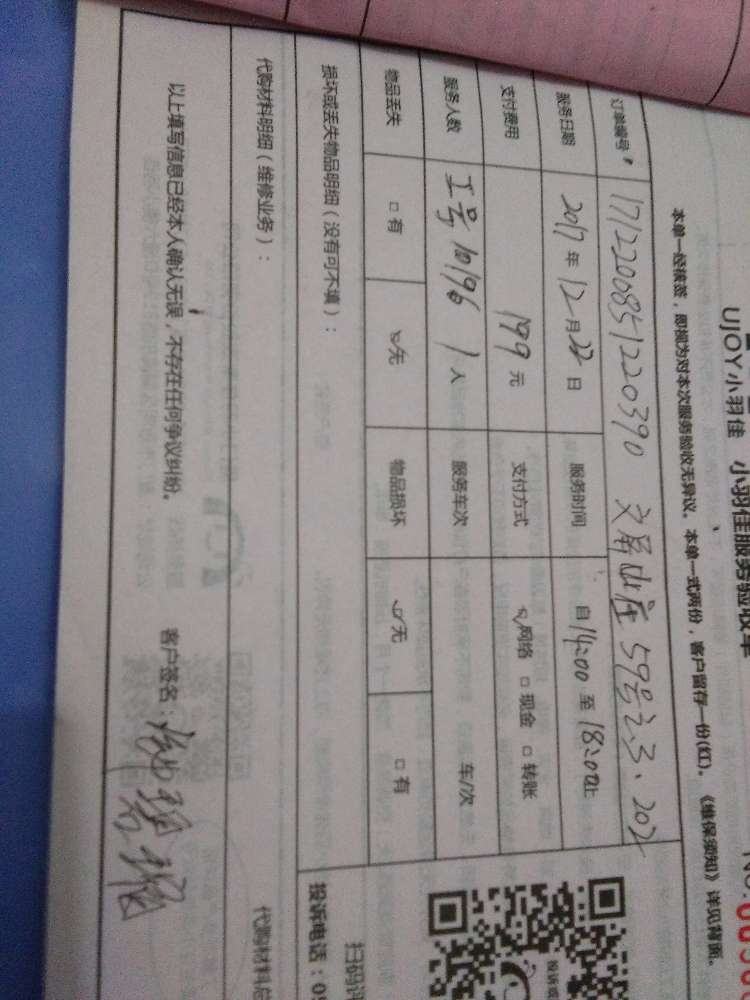 UJOY小羽佳 小羽佳服务验收单
本单一经核签，即视为对本次服务验收无异议。本单一式两份，客户留存一份(红)。《维保须知》详见背面。
订单编号 1712200851220390
59号之3、202
服务日期 2017年12月22日 服务时间 自14:00至18:00止
支付费用 199元 支付方式 ☑网络 □现金 □转账
服务人数 工号10196 1人 服务车次 车/次
物品丢失 □有 ☑无 物品损坏 ☑无 □有
损坏或丢失物品明细（没有可不填）：
代购材料明细（维修业务）：
代购材料总
以上填写信息已经本人确认无误，不存在任何争议纠纷。 客户签名：
投诉电话：05